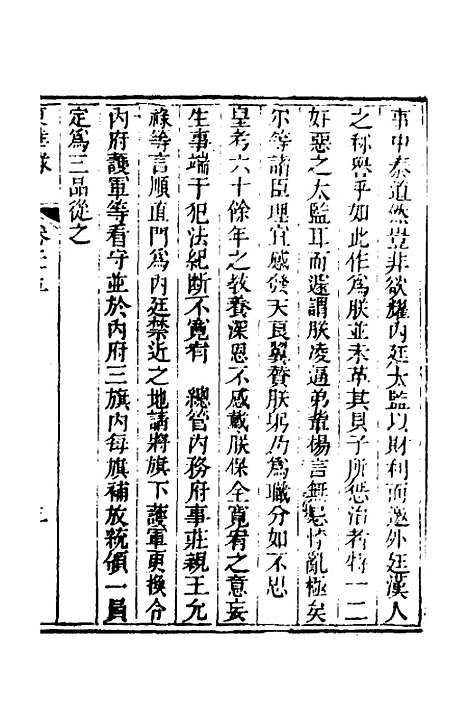 事中秦道然豈非欲耀內廷太監以財利而邀外廷漢人
之稱譽乎如此作為朕並未革其貝子所懲治者特一二
奸惡之太監耳而遂謂朕凌逼弟輩揚言無忌悖亂極矣
尓等諸臣理宜感發天良翼贊朕躬乃為職分如不思
皇考六十餘年之教養深恩不感戴朕保全寬宥之意妄
生事端干犯法紀斷不寬宥 總管內務府事莊親王允
祿等言順直門為內廷禁近之地請將旗下護軍更換令
內府護軍等看守並於內府三旗內每旗補放統領一員
定為三品從之
東華錄 卷二十五 三